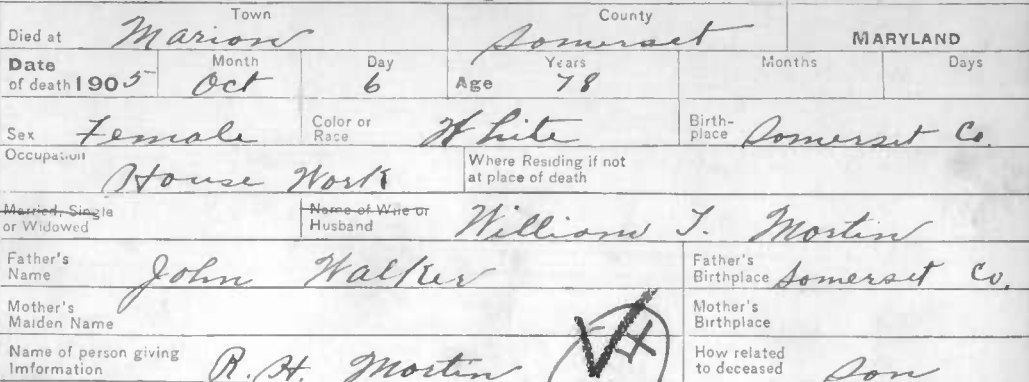 Town County
Died at Marion Somerset MARYLAND
Date Month Day Years Months Days
of death 1905 Oct 6 Age 78
Sex Female Color or Race White Birth-place Somerset Co.
Occupation House Work Where Residing if not at place of death
Married, Single or Widowed Name of Wife or Husband William T. Mortin
Father's Name John Walker Father's Birthplace Somerset Co.
Mother's Maiden Name Mother's Birthplace
Name of person giving Imformation R. H. Mortin How related to deceased Son